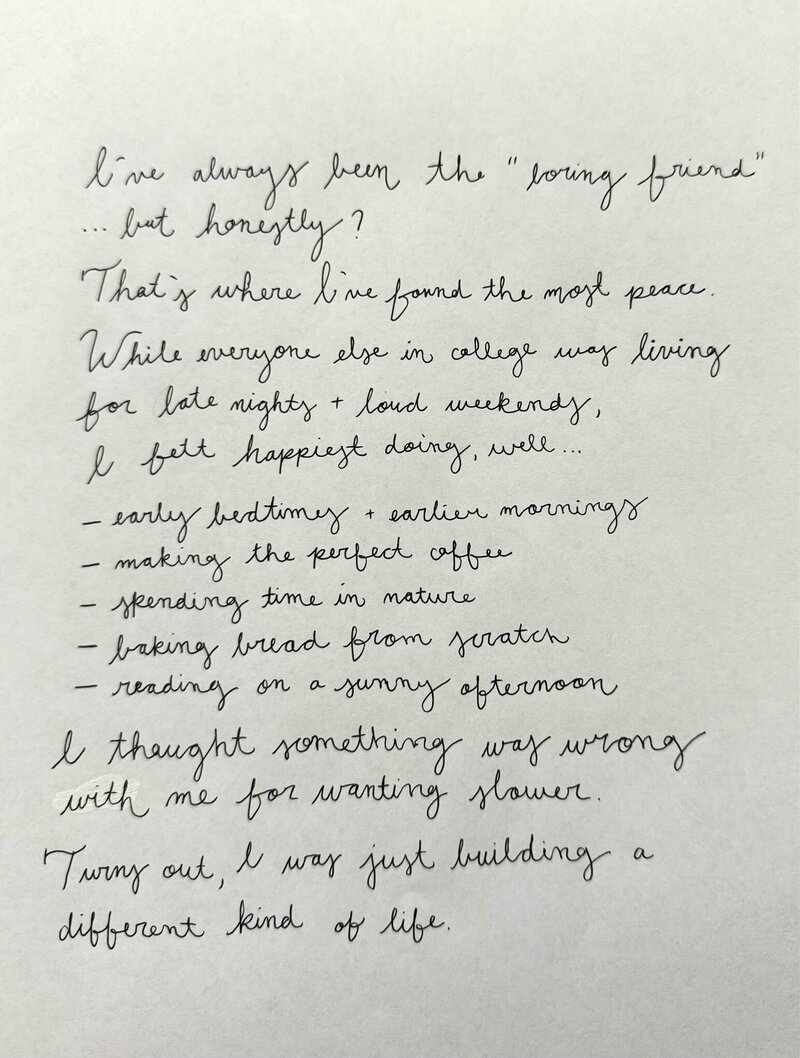 I've always been the "boring friend"
... but honestly?
That's where I've found the most peace.
While everyone else in college was living
for late nights + loud weekends,
I felt happiest doing, well...
- early bedtimes + earlier mornings
- making the perfect coffee
- spending time in nature
- baking bread from scratch
- reading on a sunny afternoon
I thought something was wrong
with me for wanting slower.
Turns out, I was just building a
different kind of life.